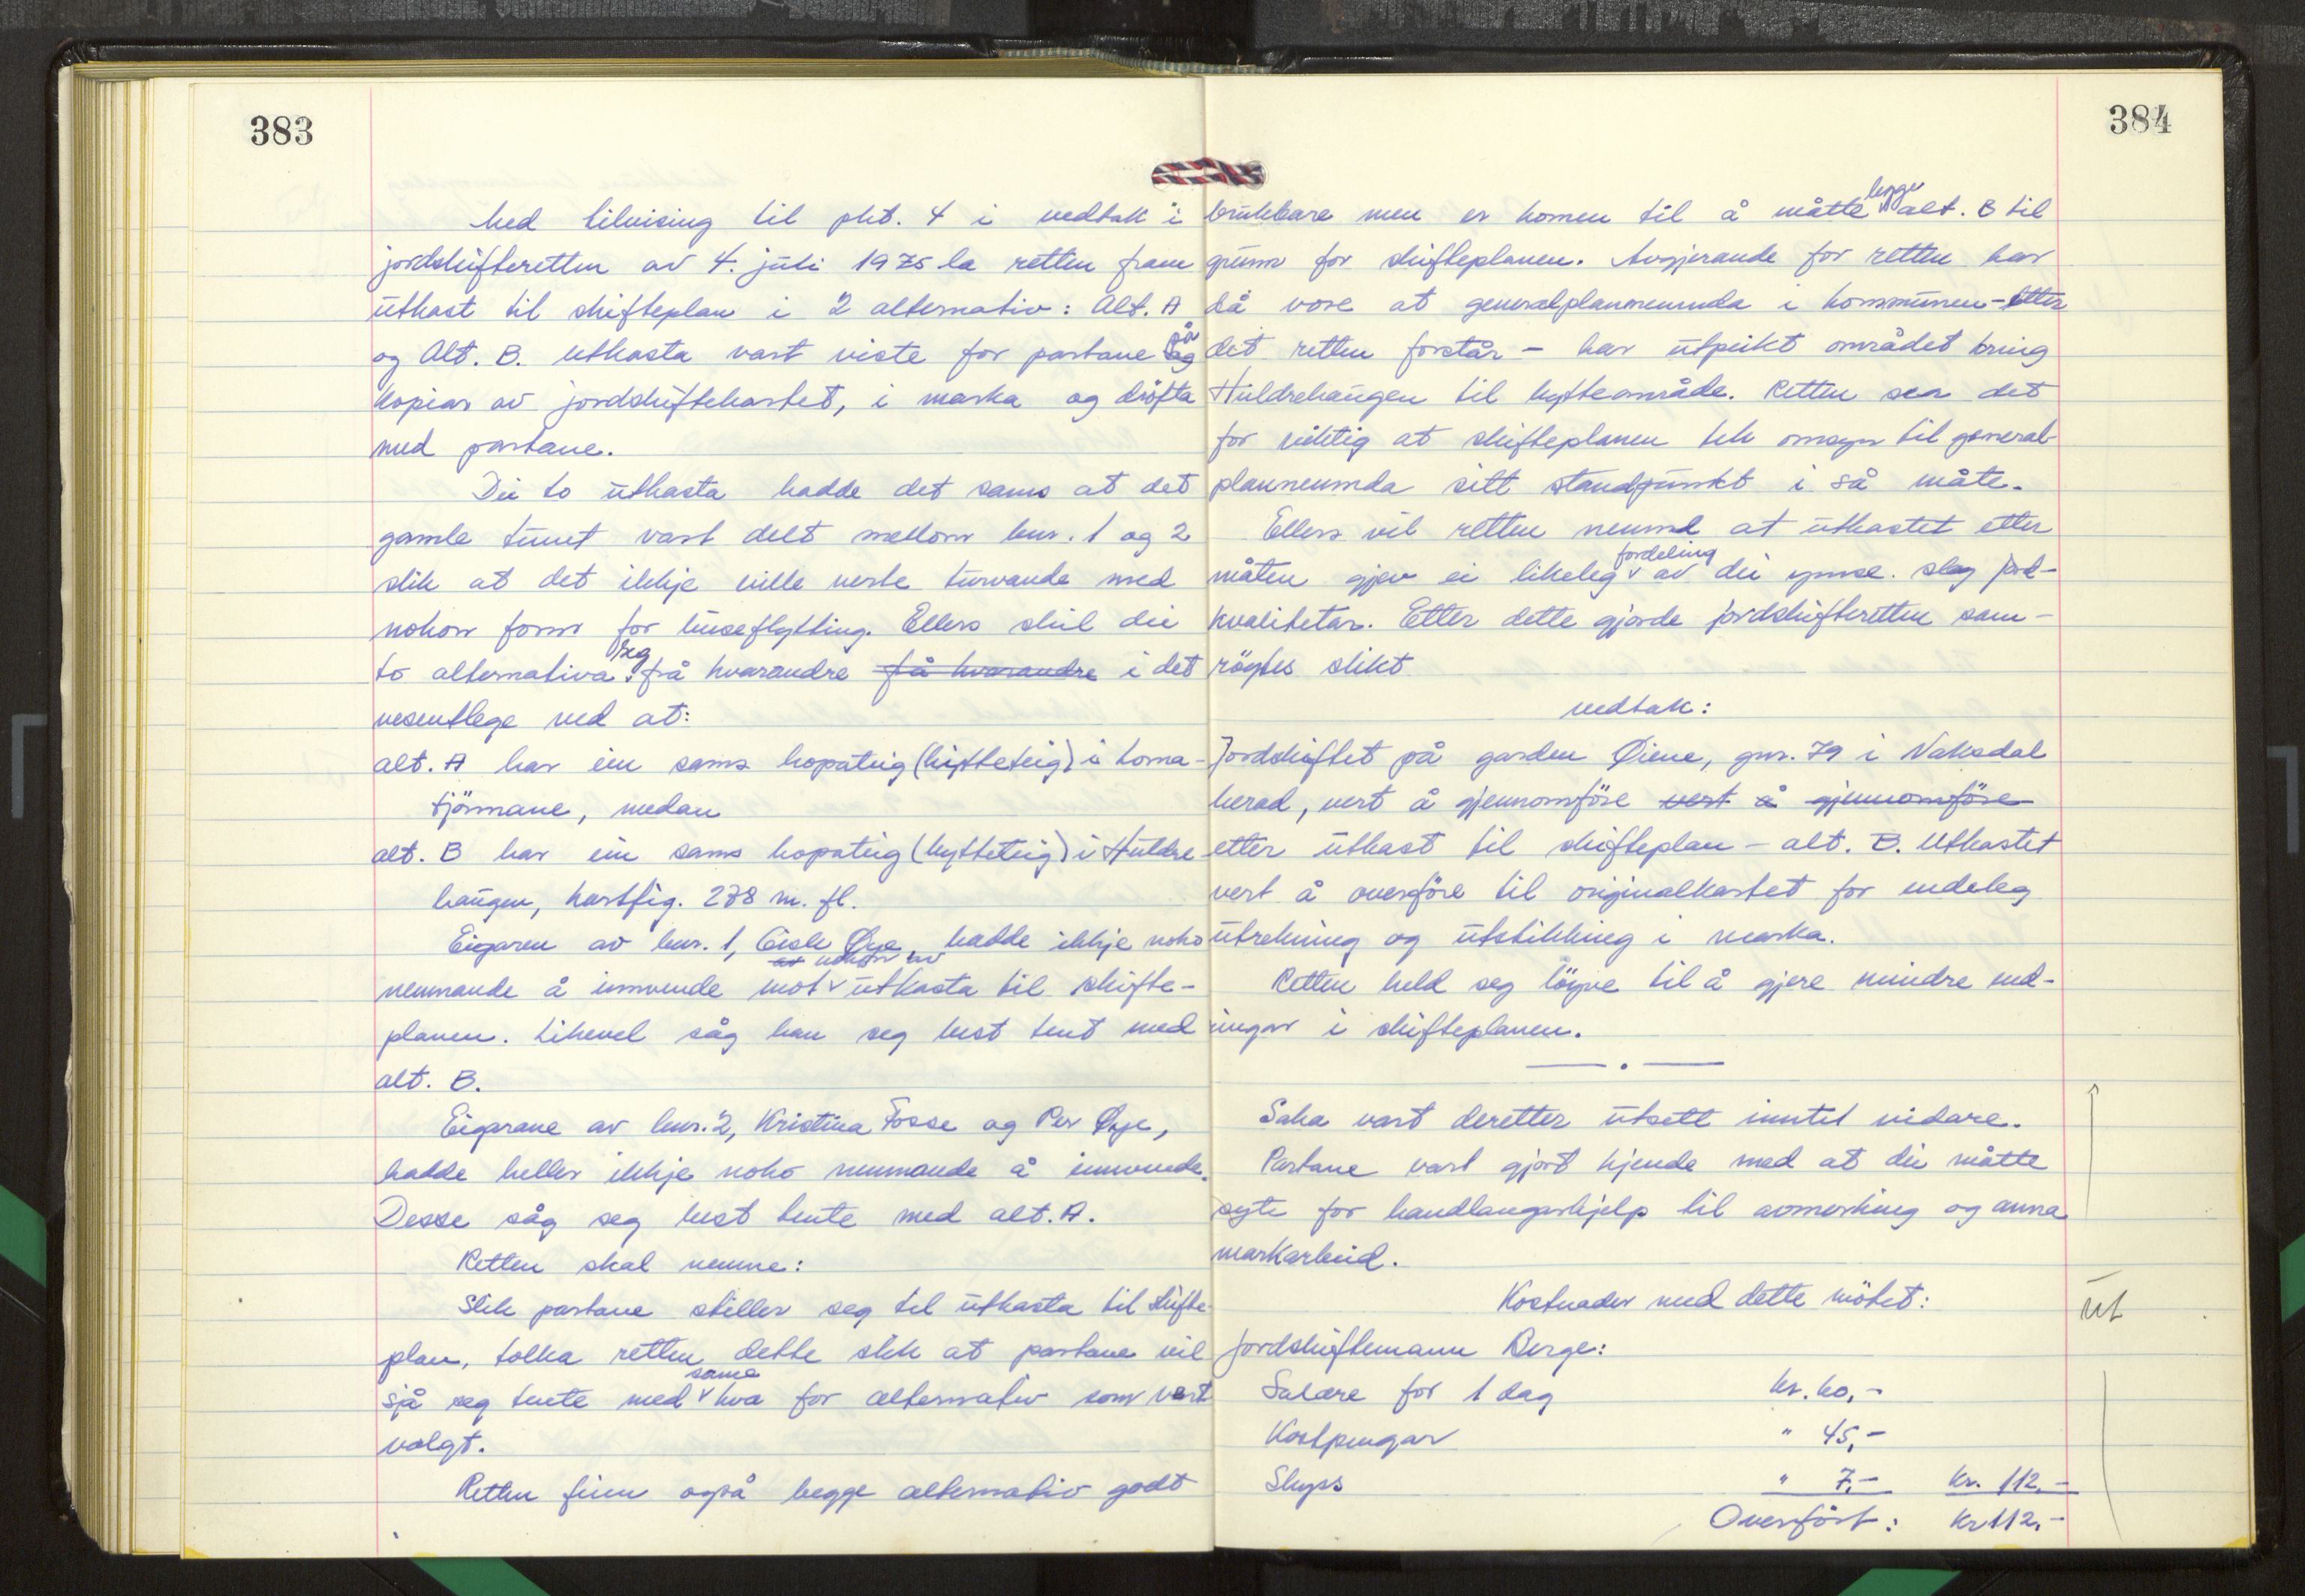 383
Med tilvising til pkt. 4 i vedtak i
jordskifteretten av 4. juli 1975 la retten fram
utkast til skifteplan i 2 alternativ: Alt. A
og Alt. B. Utkasta vart viste for partane på
kopiar av jordskiftekartet, i marka og dröfta
med partane.
Dei to utkasta hadde det sams at det
gamle tunet vart delt mellom bnr. 1 og 2
slik at det ikkje ville verte turvande med
nokon form for huseflytting. Ellers skil dei
to alternativa seg frå hvarandre få hvarandre i det
vesentlege ved at:
alt. A har ein sams hopateig (hytteteig) i Torna-
tjörnane, medan
alt. B har ein sams hopateig (hytteteig) i Huldre-
haugen, kartfig. 278 m. fl.
Eigaren av bnr. 1, Gisle Øye, hadde ikkje noko
nemnande å innvende mot nokon av utkasta til skifte-
planen. Likevel såg han seg best tent med
alt. B.
Eigarane av bnr. 2, Kristina Fosse og Per Øye,
hadde heller ikkje noko nemnande å innvende.
Desse såg seg best tente med alt. A.
Retten skal nemne:
Slik partane stiller seg til utkasta til skifte-
plan, tolka retten dette slik at partane vil
sjå seg tente med same kva for alternativ som vert
valgt.
Retten finn også begge alternativ godt
384
brukbare men er komen til å måtte legge alt. B til
grunn for skifteplanen. Avgjerande for retten har
då vore at generalplannemnda i kommunen - etter
det retten forstår - har utpeikt området kring
Huldrehaugen til hytteområde. Retten ser det
for riktig at skifteplanen tek omsyn til general-
plannemnda sitt standpunkt i så måte.
Ellers vil retten nemne at utkastet etter
måten gjev ei likeleg fordeling av dei ymse slag jord-
kvalitetar. Etter dette gjorde jordskifteretten sam-
röystes slikt
vedtak:
Jordskiftet på garden Øiene, gnr. 79 i Vaksdal
herad, vert å gjennomföre vert å gjennomföre
etter utkast til skifteplan - alt. B. Utkastet
vert å overföre til originalkartet for endeleg
utrekning og utstikking i marka.
Retten held seg löyve til å gjere mindre end-
ingar i skifteplanen.
Saka vart deretter utsett inntil vidare.
Partane vart gjort kjende med at dei måtte
syte for handlangarhjelp til avmerking og anna
markarbeid.
Kostnader med dette mötet:
ut
Jordskiftemann Berge:
Salære for 1 dag kr. 60,-
Kostpengar " 45,-
Skyss " 7,- Kr. 112,-
Overfört: Kr 112,-